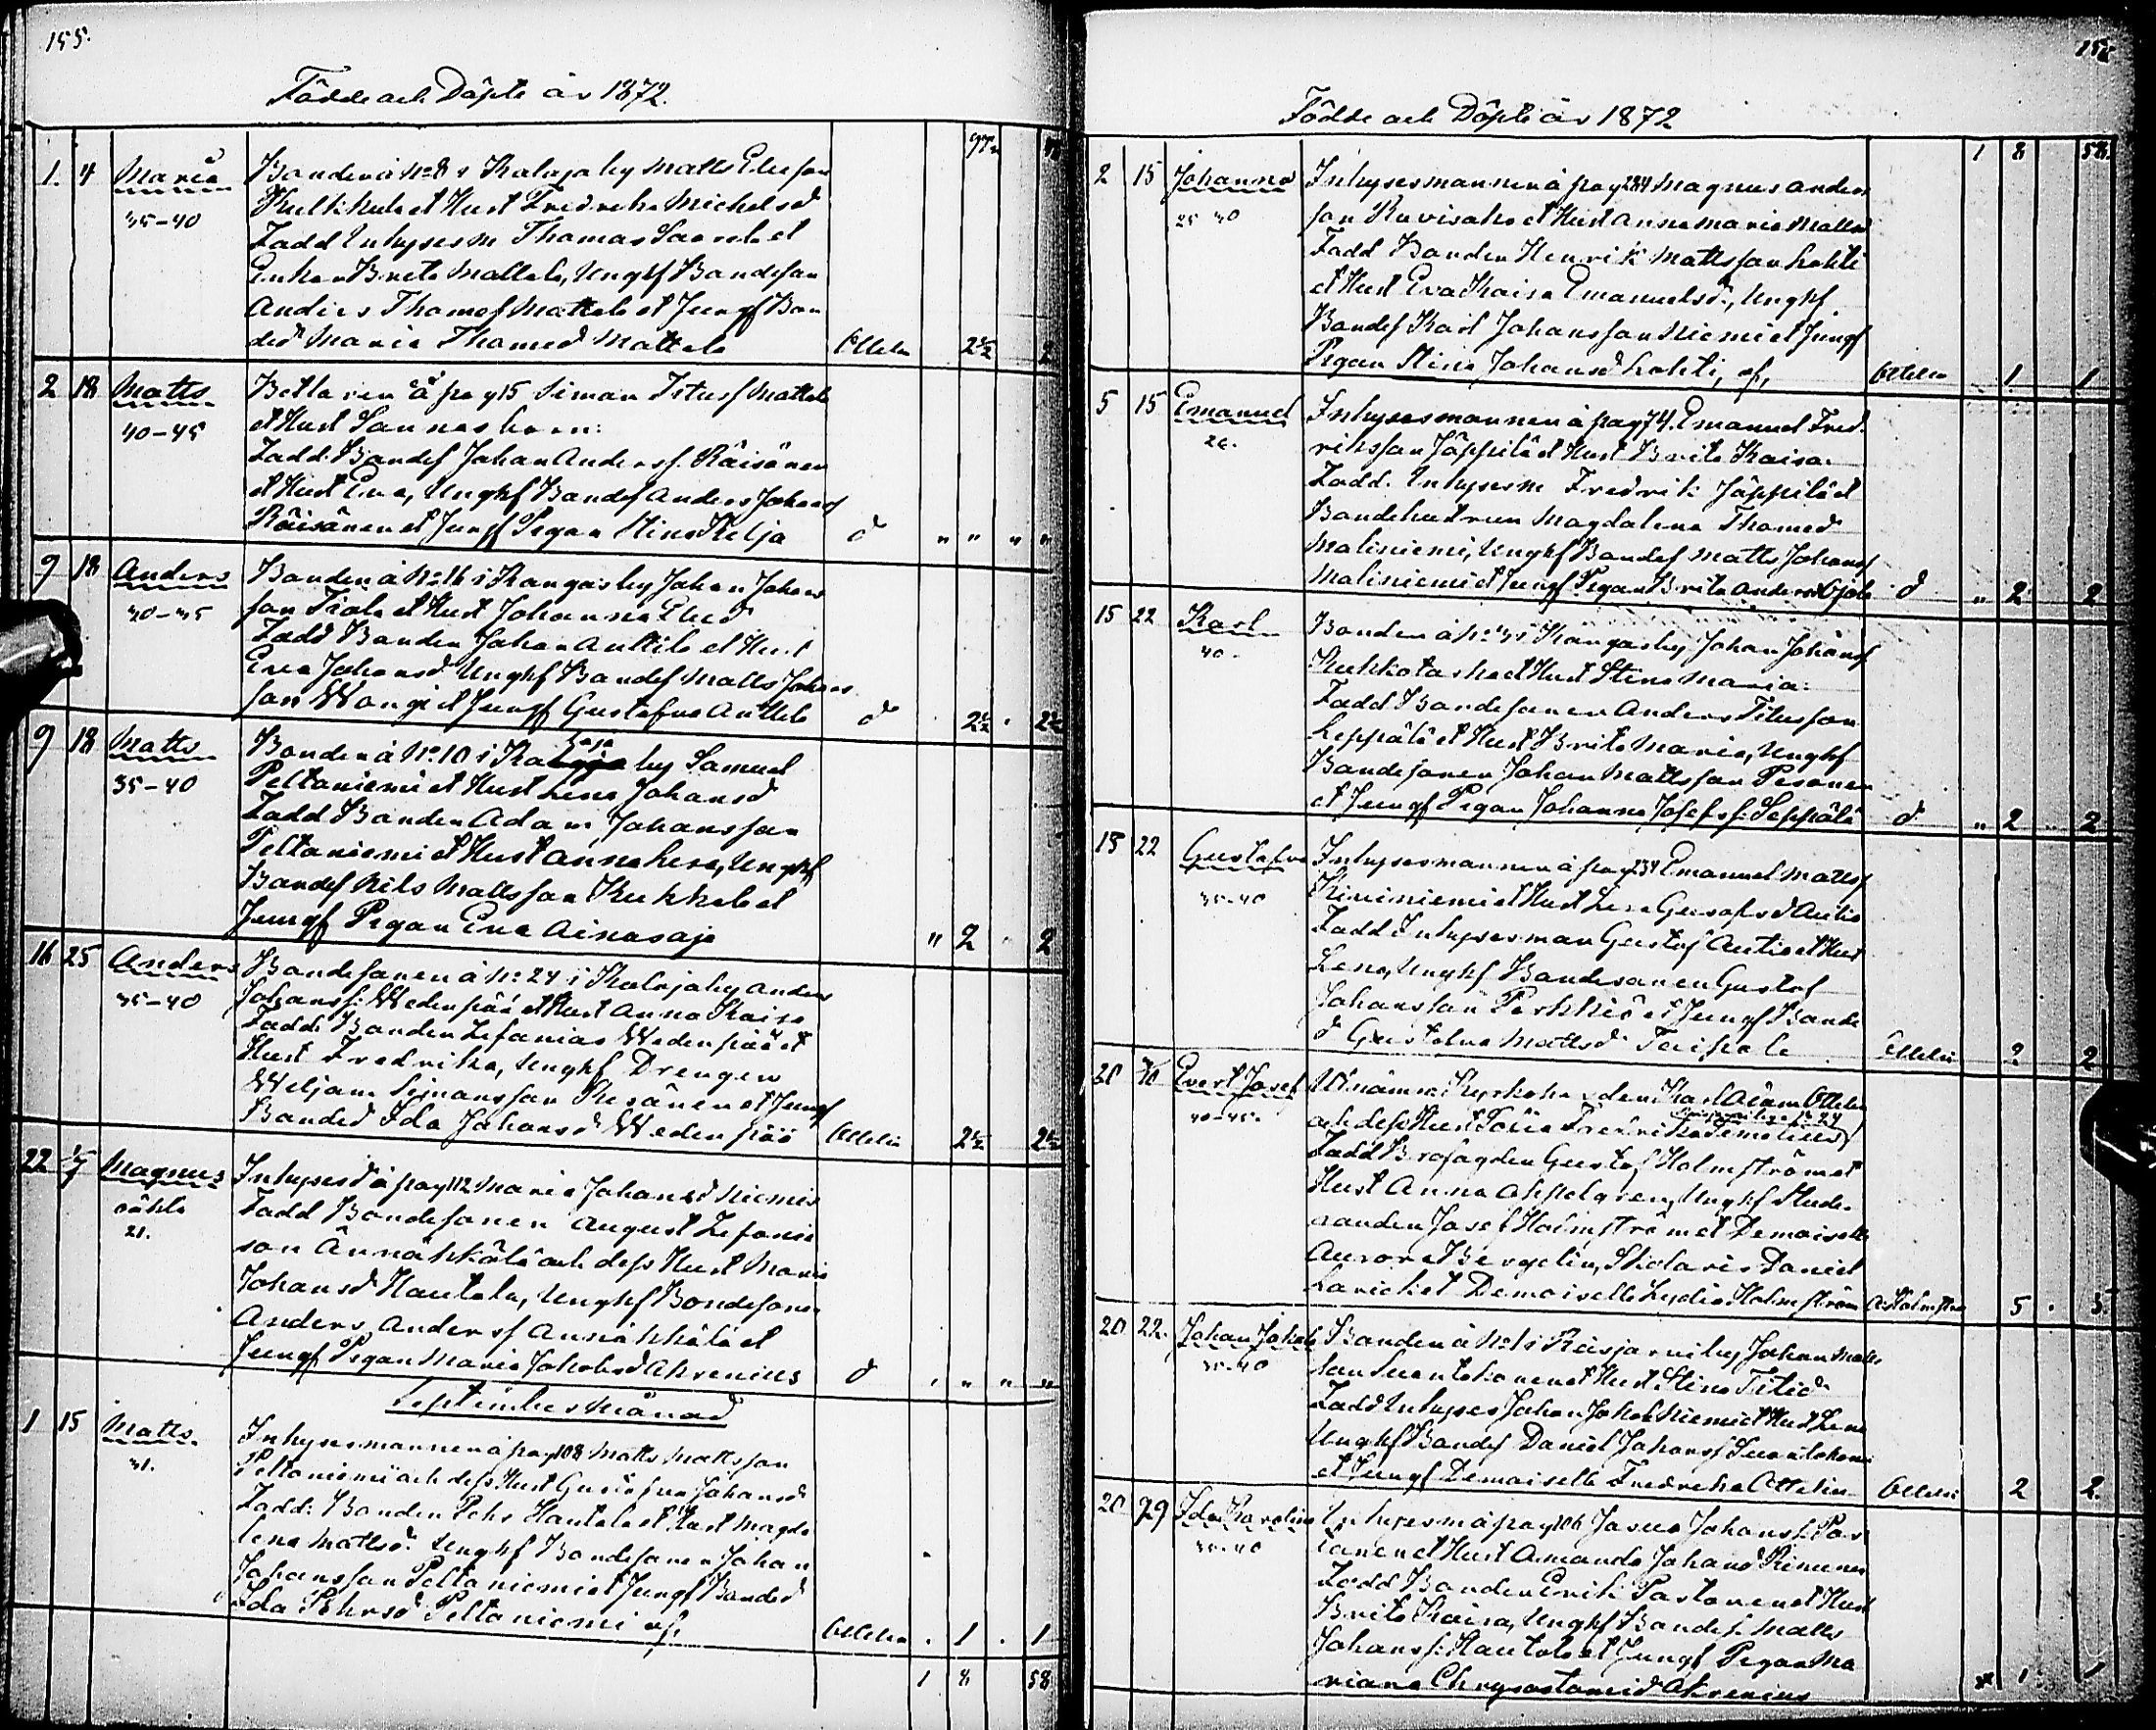 155.
Födde och Döpte år 1872.
1. 4 Maria Bonden å No 8 i Kalaja by Matts Eliesson
35-40 et Hust Fredrika Michelsd
Fadd Inhysesm Thomas et
Enkan Brita Mattela, Unghf Bondeson
Anders Thomass Mattela et Jungf Bon
ded Maria Thomasd Mattela Ottelin 2½ 2
2 18 Matts på pag 15 Simon Titusf Mattela
40-45 et Hust Sanna
Fadd. Bondes Johan Andersf. Räisänen
et Hust Eva, Unghf Bondes Anders Johansf
Räisänen et Jungf Pigan Stina d " " " "
9 18 Anders Bonden å No 16 i Kangas by Johan Johans
30-35 son Tiala et Hust Johanna
Fadd Bonden Johan Anttila et Hust
Eva Johansd Unghf Bondes Matts Johans
son et Jungf Gustafva Anttila d 2½ 2½
9 18 Matts Bonden å No 10 i Kalaja by Samuel
35-40 Peltoniemi et Hust Lena Johansd
Fadd Bonden Adam Johansson
Peltoniemi et Hust Anna Lena, Unghf
Bondes Nils Mattsson Kukkola et
Jungf Pigan Eva Ainasoja " 2 " 2
16 25 Anders Bondesonen å No 24 i Kalaja by Anders
35-40 Johansf. Wedenpää et Hust Anna Kaisa
Fadd: Bonden Zefanias Wedenpää et
Hust Fredrika, Unghf Drengen
Weljam Simonsson et Jungf
Bonded Ida Johansd Wedenpää Ottelin 2½ 2½
22 Magnus Inhysesd å pag 112 Maria Johansd Niemi
oäkta Fadd Bondesonen August Zefania
21. son Ännäkkälä och dess Hust Maria
Johansd Hautala, Unghf Bondesonen
Anders Andersf Ännäkkälä et
Jungf Pigan Maria Jakobsd Ahrenius d " " " "
September Månad
1 15 Matts Inhysesmannen å pag 108 Matts Mattsson
31. Peltoniemi och dess Hust Gustafva Johansd
Fadd: Bonden Pehr Hautala et Hust Magda
lena Mattsd. Unghf Bondesonen Johan
Johansson Peltoniemi et Jungf Bonded
Ida Pehrsd Peltoniemi Ottelin . 1 . 1
1 8 58
156
Födde och Döpte år 1872
1 8 58.
2 15 Johanna Inhysesmannen å pag 284 Magnus Anders
25-30 son et Hust Anna Maria Mattsd
Fadd Bonden Henrik Mattsson Lahti
et Hust Eva Kaisa Emanuelsd, Unghf
Bondes Karl Johansson Niemi et Jungf
Pigan Stina Johansd Lahti, Ottelin 1 1
5 15 Emanuel Inhysesmannen å pag 74. Emanuel Fred
26. riksson Jäppilä et Hust Brita Kaisa
Fadd. Inhysesm Fredrik Jäppilä et
Bondehustrun Magdalena Thomasd
Maliniemi, Unghf Bondes Matts Johansf
Maliniemi et Jungf Pigan Brita Andersd d " 2 2
15 22 Karl Bonden å No i Kangas by Johan Johansf
40 et Hust Stina Maria
Fadd Bondesonen Anders Titusson
Leppälä et Hust Brita Maria, Unghf
Bondesonen Johan Mattsson Pesonen
et Jungf Pigan Johanna Josefsf. Seppälä d " 2 2
18 22 Gustafva Inhysesmannen å pag 234 Emanuel Mattsf
35-40 Kiviniemi et Hust Lisa Gustafsd Autio
Fadd Inhysesman Gustaf Autio et Hust
Lena, Unghf Bondesonen Gustaf
Johansson Perkkiö et Jungf Bonde
d Gustafva Mattsd Taipale Ottelin 2 2
20 Evert Josef Kyrkoherden Karl Adam Ottelin
40-45. och dess Hust Sofia Fredrika
Fadd Brofogden Gustaf Holmström et
Hust Anna Appelgren, Unghf Stude
randen Josef Holmström et Demoiselle
Aurora Bergelin, Skolaris Daniel
et Demoiselle Lydia Holmström A. Holmström 5 . 5
20 22. Johan Jakob Bonden å No i Reisjärvi by Johan Matts
35-40 son et Hust Stina Titid
Fadd Inhyses Johan Jakob Niemi et Hust Lena
Unghf Bondes Daniel Johansf
et Jungf Demoiselle Fredrika Ottelin Ottelin 2 2.
20 29 Ida Karolina Inhysesm å pag 106 Johansf. Pas
35-40 tanen et Hust Amanda Johansd Kinnunen
Fadd Bonden Erik Pastanen et Hust
Brita Kaisa, Unghf Bondes. Matts
Johansf. Hautala et Jungf Pigan Ma
riana Chrysostomid Ahrenius 1 1